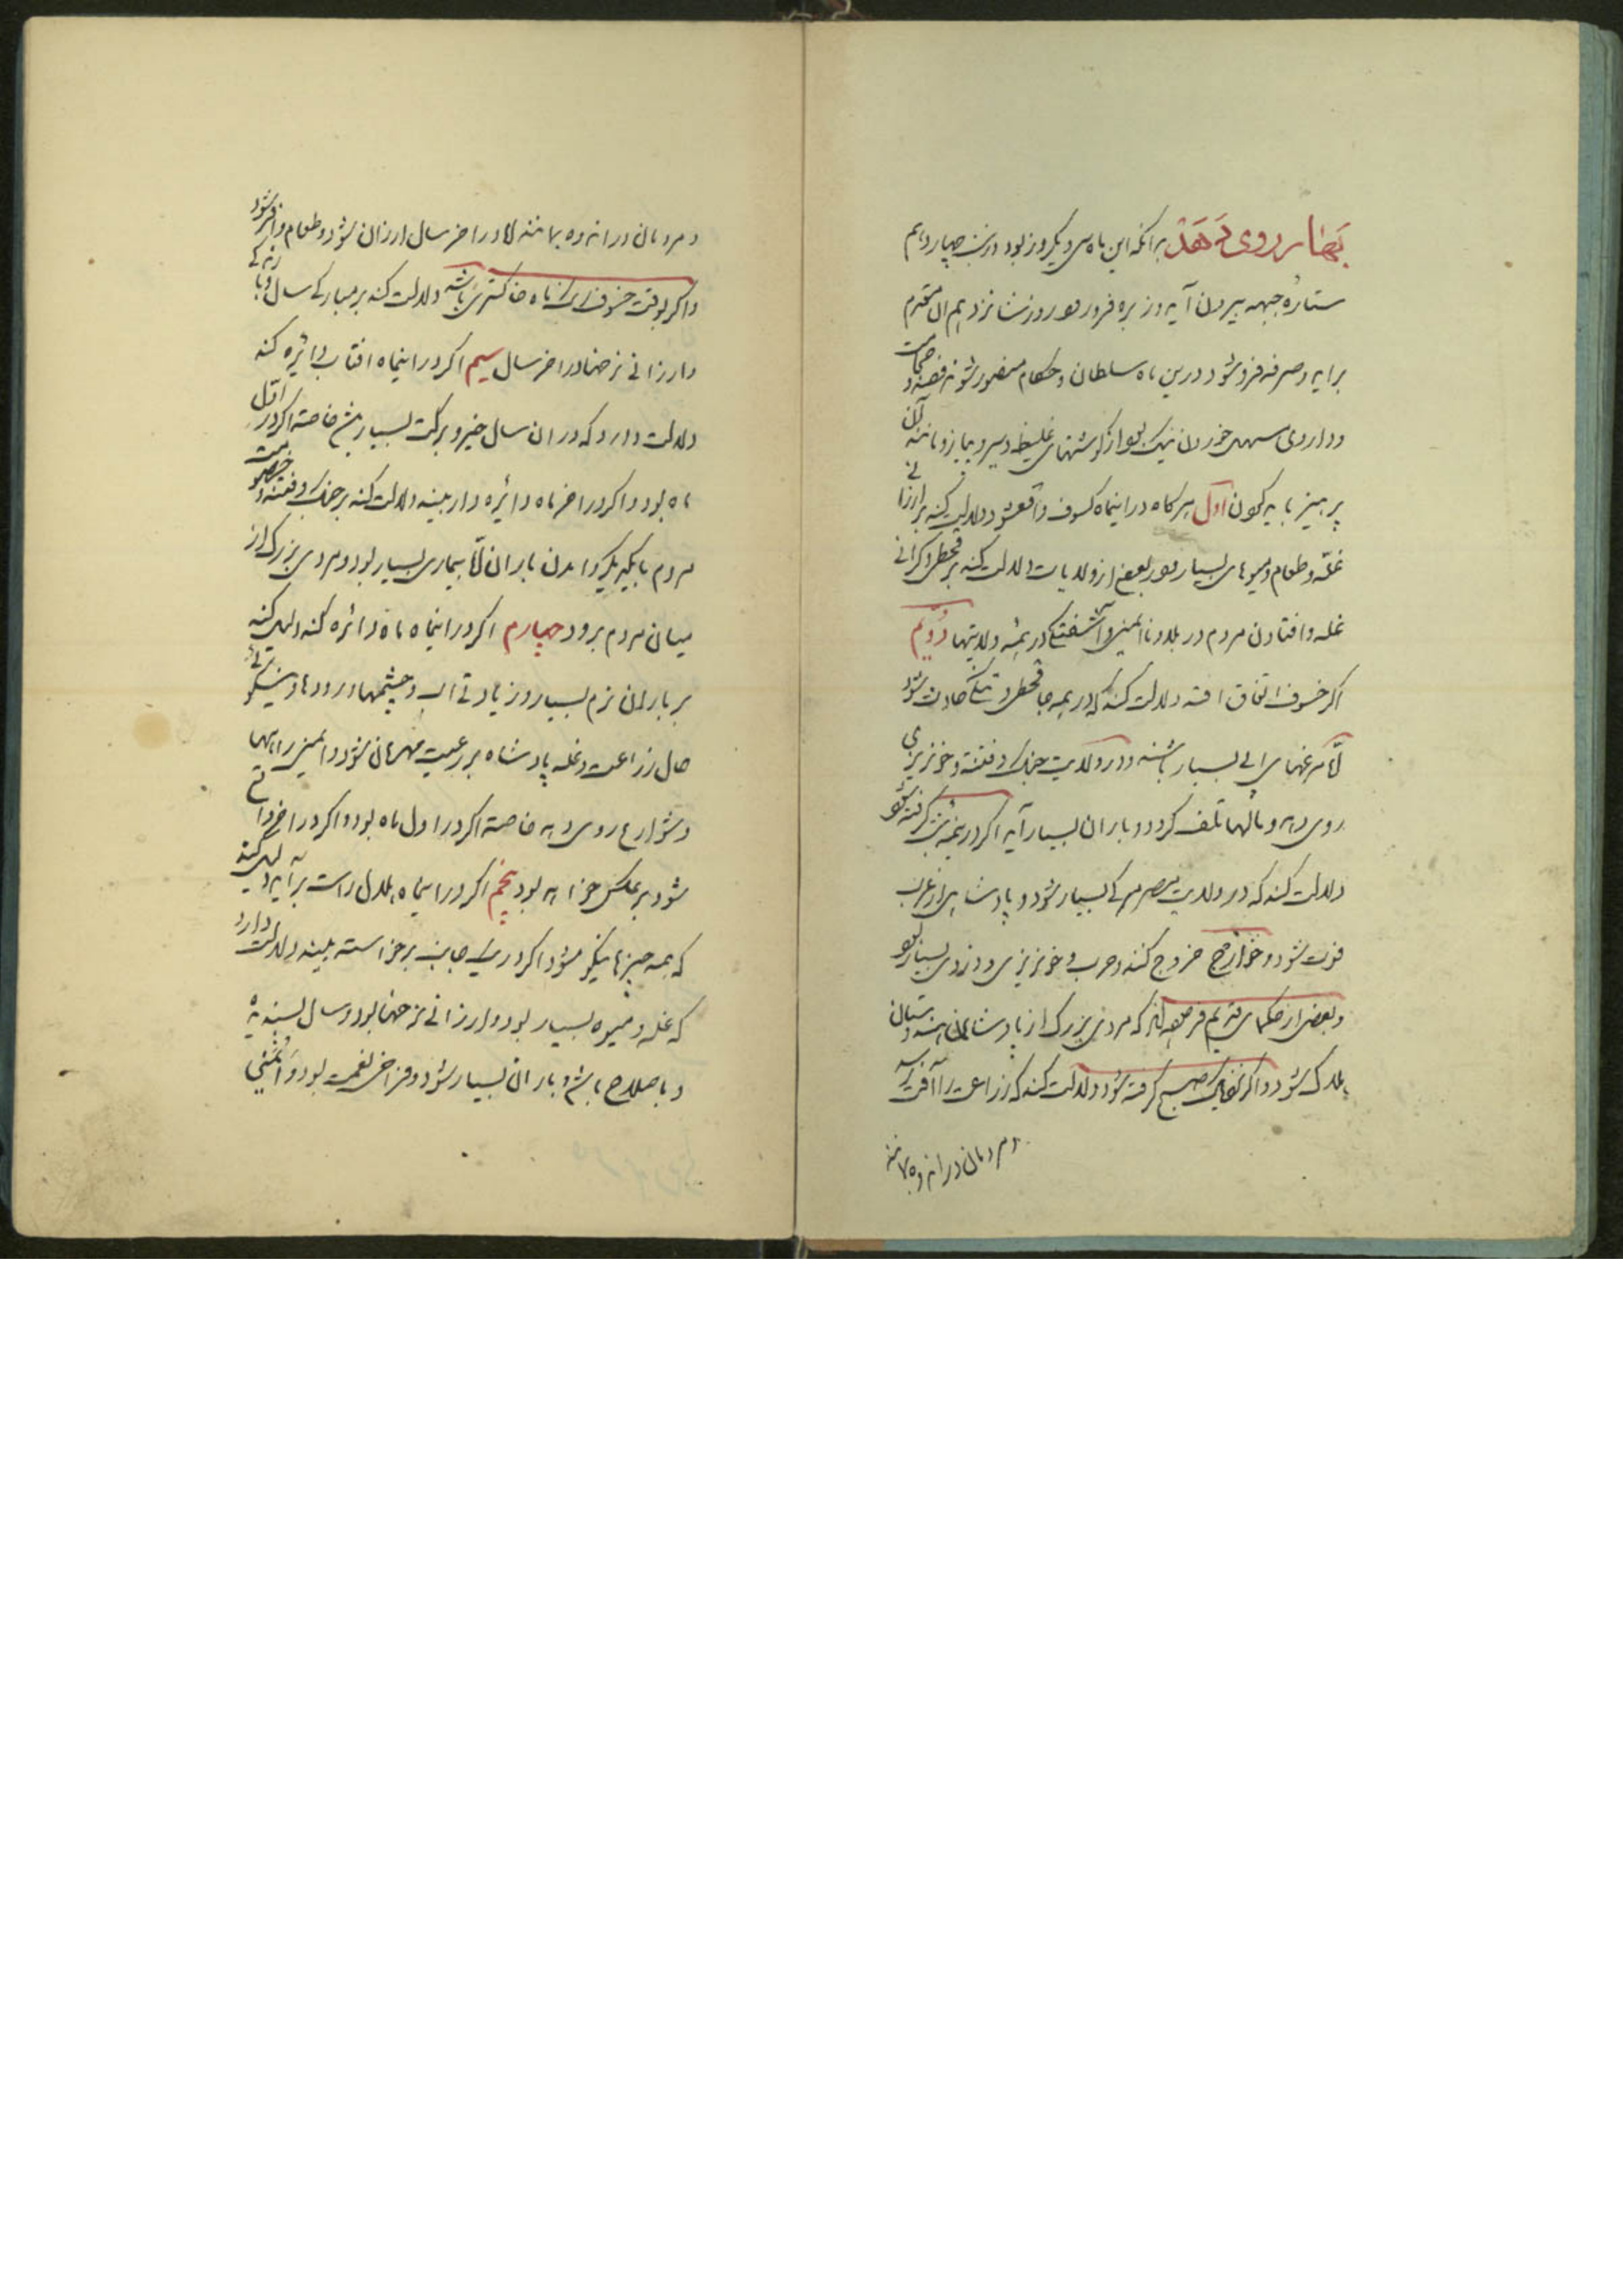 بدانکه این ماه سی و یکروز بود در شب چهاردهم
ستاره جبهه بیرون آید و زبره فرو رود روز شانزدهم
برآید و صرفه فرو شود درین ماه سلطان و حکام منصور شوند فصد و حجامت
و داروی مسهل خوردن نیک بود از گوشتهای غلیظ و سیر و پیاز و مانند آن
پرهیز باید کردن اول هرگاه در اینماه کسوف واقع شود دلالت کند بر ارزانی
غله و طعام و میوهای بسیار بود بعضی از ولایات دلالت کند بر قحطی و گرانی
غله و افتادن مردم در بلا و ناایمنی و آشفتگی در همه ولایتها دویم
اگر خسوف اتفاق افتد دلالت کند که در همه جا قحطی و تنگی حادث شود
مرغهای آبی بسیار باشند و در ولایت جنگ و فتنه و خونریزی
روی دهد و مالها تلف گردد و باران بسیار آید اگر در نیمه شب گرفته شود
دلالت کند که در ولایت مصر مرگی بسیار شود و پادشاهی از غرب
فوت شود و خوارج خروج کنند و حرب و خونریزی و دزدی بسیار بود
و بعضی از حکمای قدیم فرموده‌اند که مردی بزرگ از پادشاهان هندوستان
هلاک شود و اگر نزدیک صبح گرفته شود دلالت کند که زراعت را آفت رسد
و مردمان در اندوه بمانند
و مردمان در اندوه بمانند اما در آخر سال ارزان شود و طعام وافر شود
و اگر بوقت خسوف رنگ ماه خاکستری باشد دلالت کند بر مبارکی سال و با
و ارزانی نرخها در آخر سال سیم اگر در اینماه افتاب دائره کند
دلالت دارد که در ان سال خیر و برکت بسیار باشد خاصه اگر در اول
ماه بود و اگر در آخر ماه دائره دار بیند دلالت کند بر جنگ و فتنه و خصومت
مردم با یکدیگر و آمدن باران اما بیماری بسیار بود و مردی بزرگ از
میان مردم برود چهارم اگر در اینماه ماه دائره کند دلیل کند
بر باران نرم بسیار و زیادتی اب و چشمها و رودها و نیکوئی
حال زراعت و غله پادشاه بر رعیت مهربان شود و ایمنی راهها
و شوارع روی دهد خاصه اگر در اول ماه بود و اگر در آخر واقع
شود بر عکس خواهد بود پنجم اگر در اینماه هلال راست برآید دلیل کند
که همه چیزها نیکو شود اگر در یک جانب برخاسته بیند دلالت دارد
که غله و میوه بسیار بود و ارزانی نرخها بود و سال پسندیده
و با صلاح باشد و باران بسیار شود و فراخی نعمت بود و ایمنی